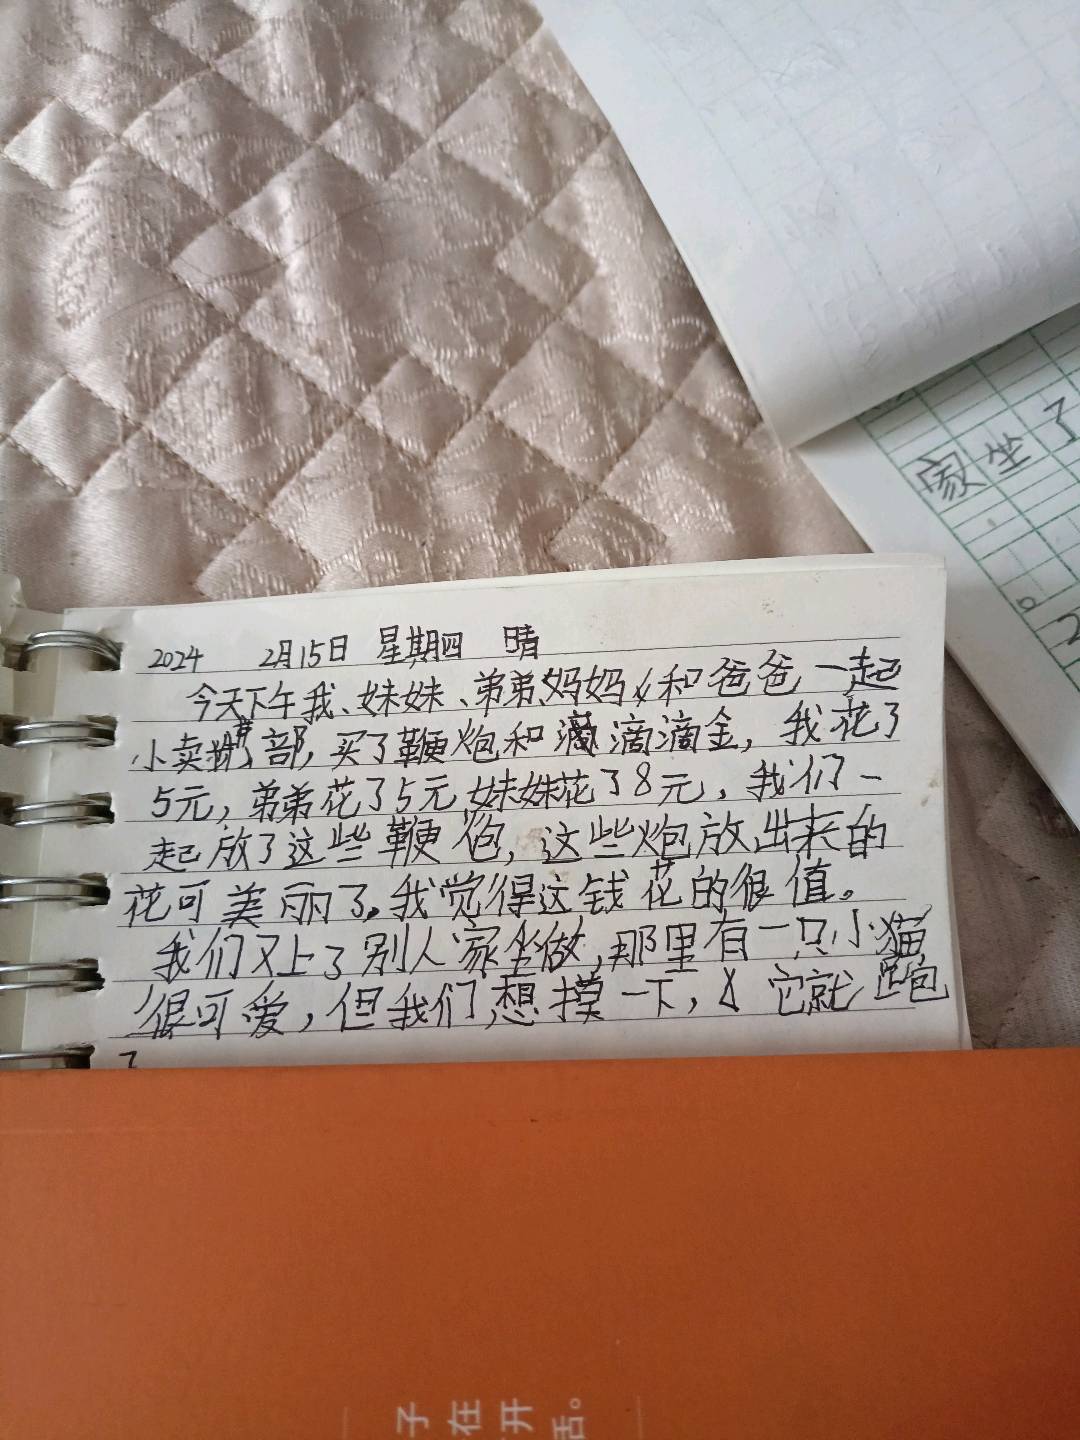 家坐了
2
2024 2月15日 星期四 晴
今天下午我、妹妹、弟弟、妈妈和爸爸一起
小卖部，买了鞭炮和滴滴金，我花了
5元，弟弟花了5元，妹妹花了8元，我们一
起放了这些鞭炮，这些炮放出来的
花可美丽了。我觉得这钱花的很值。
我们又上了别人家坐做，那里有一只小猫，
很可爱，但我们想摸一下，它就跑
了
子在开
活。